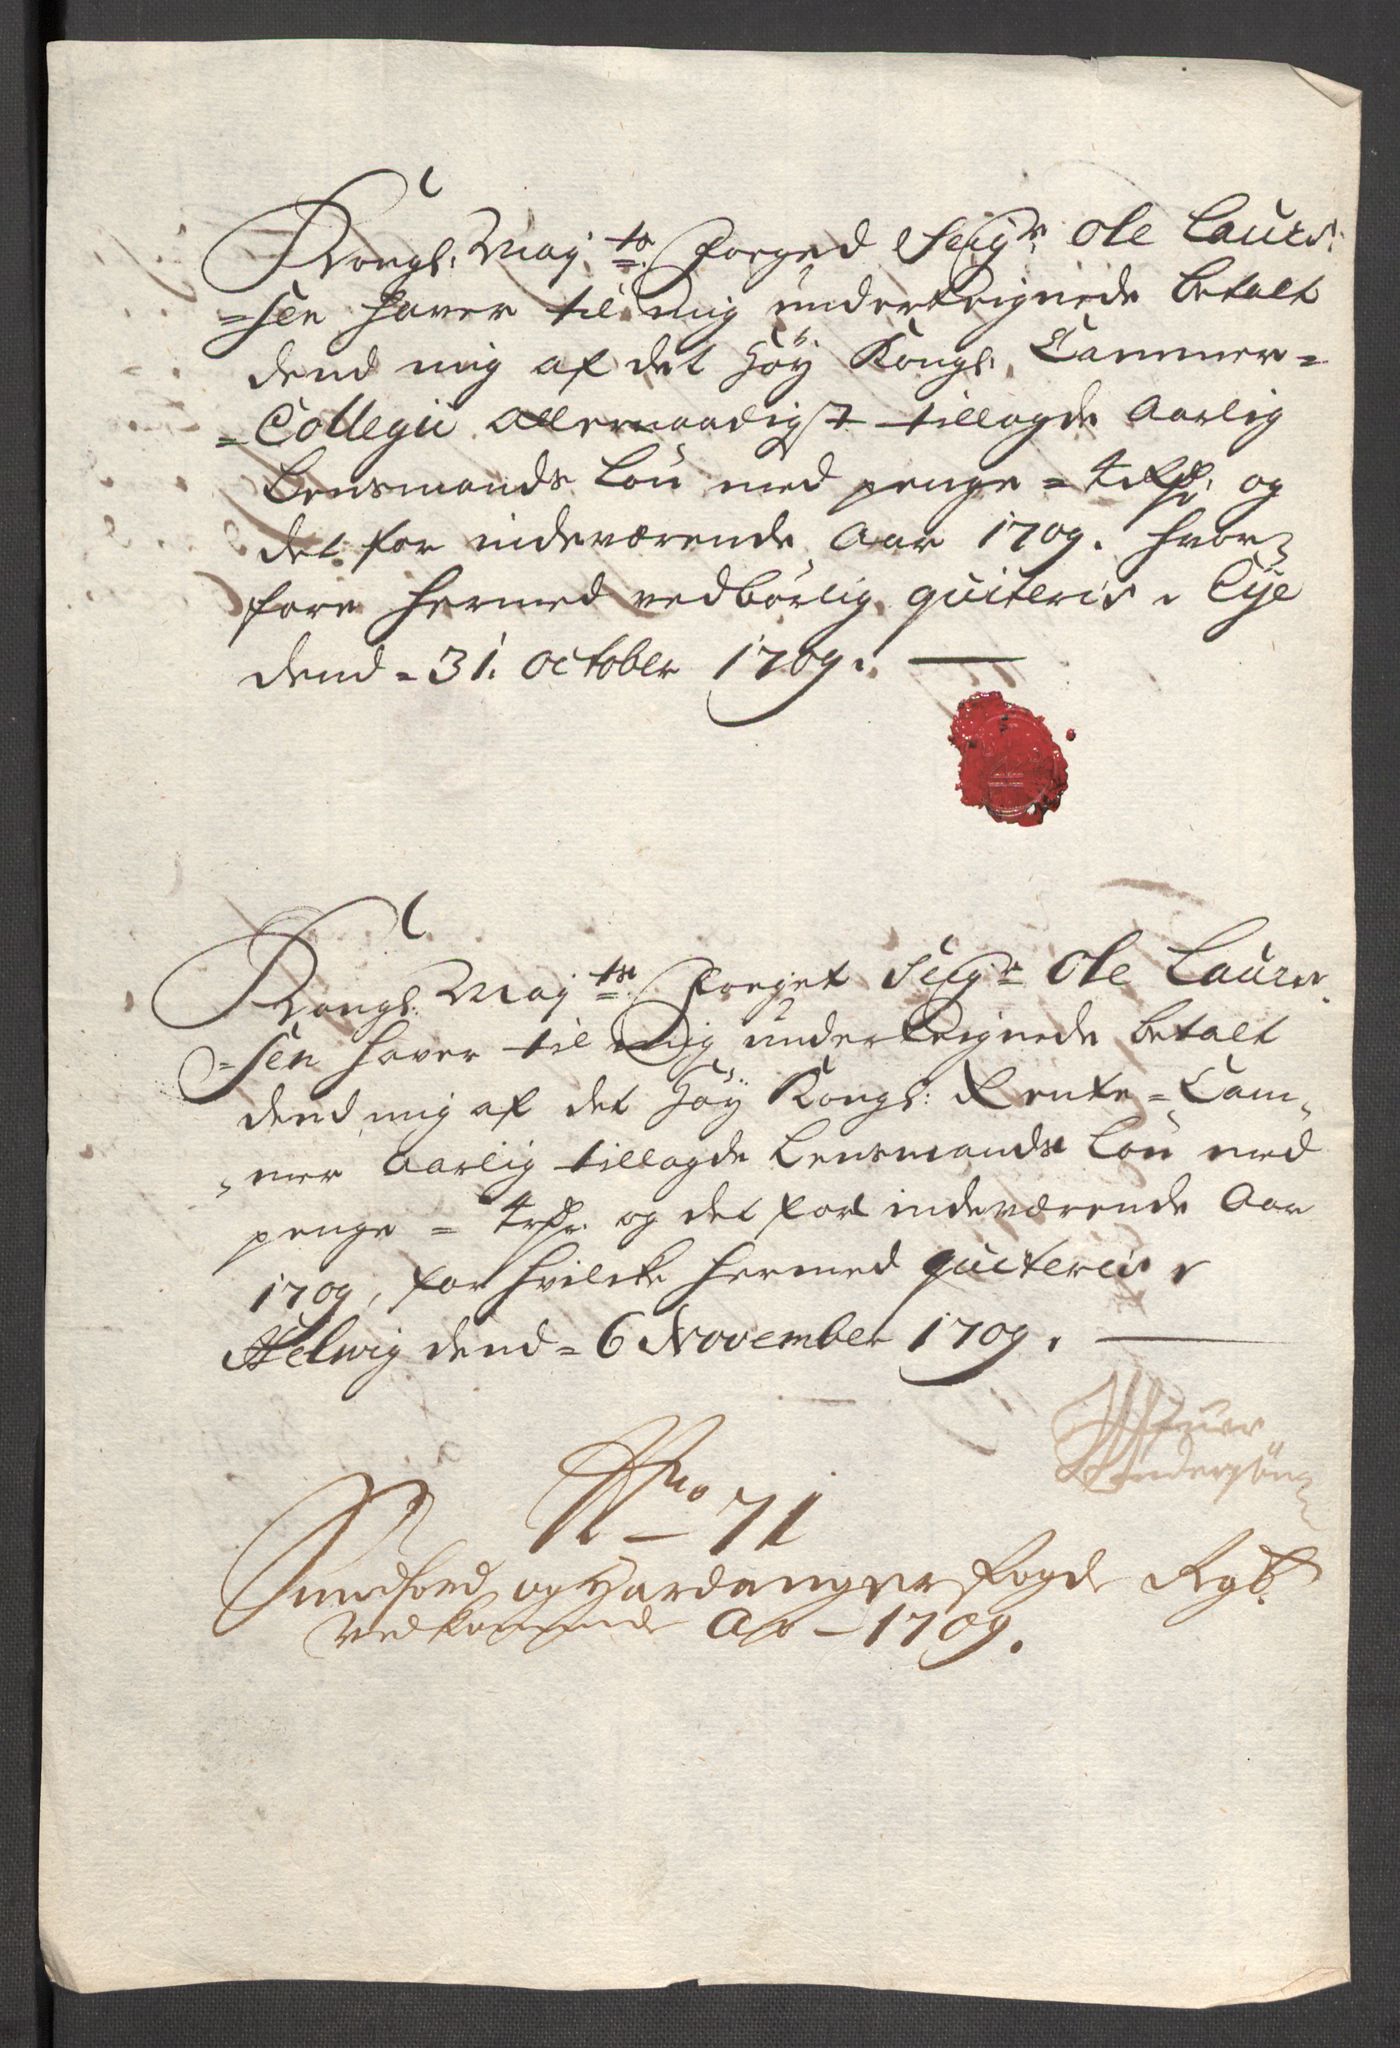 Kongl: Maj.ts Foeged Seigr. Ole Laurs:
=sen haver til mig underteignede betalt
dend mig af det Höy Kongl. Cammer=
=Collegii Allernaadigst tillagde Aarlig
Lensmands Lön med penge = 4 Rdr. og
det for indeværende Aar 1709. hvor=
fore hermed vedbörlig qviteris. Eye
dend = 31. October 1709.
Kongl: Maj.ts Foeget Seigr. Ole Laurs
=sen haver til mig underteignede betalt
dend mig af det Höy Kongl: Rente=Cam=
=mer Aarlig tillagde Lensmands Lön med
penge = 4 rdr. og det for indeværende Aar
1709, for hvilcke hermed qviteris
Helwig dend = 6 November 1709.
Iver
Andersön
No 71
Sundhord og Hardanger Fogde Rgb.
Vedkommende Ao - 1709.